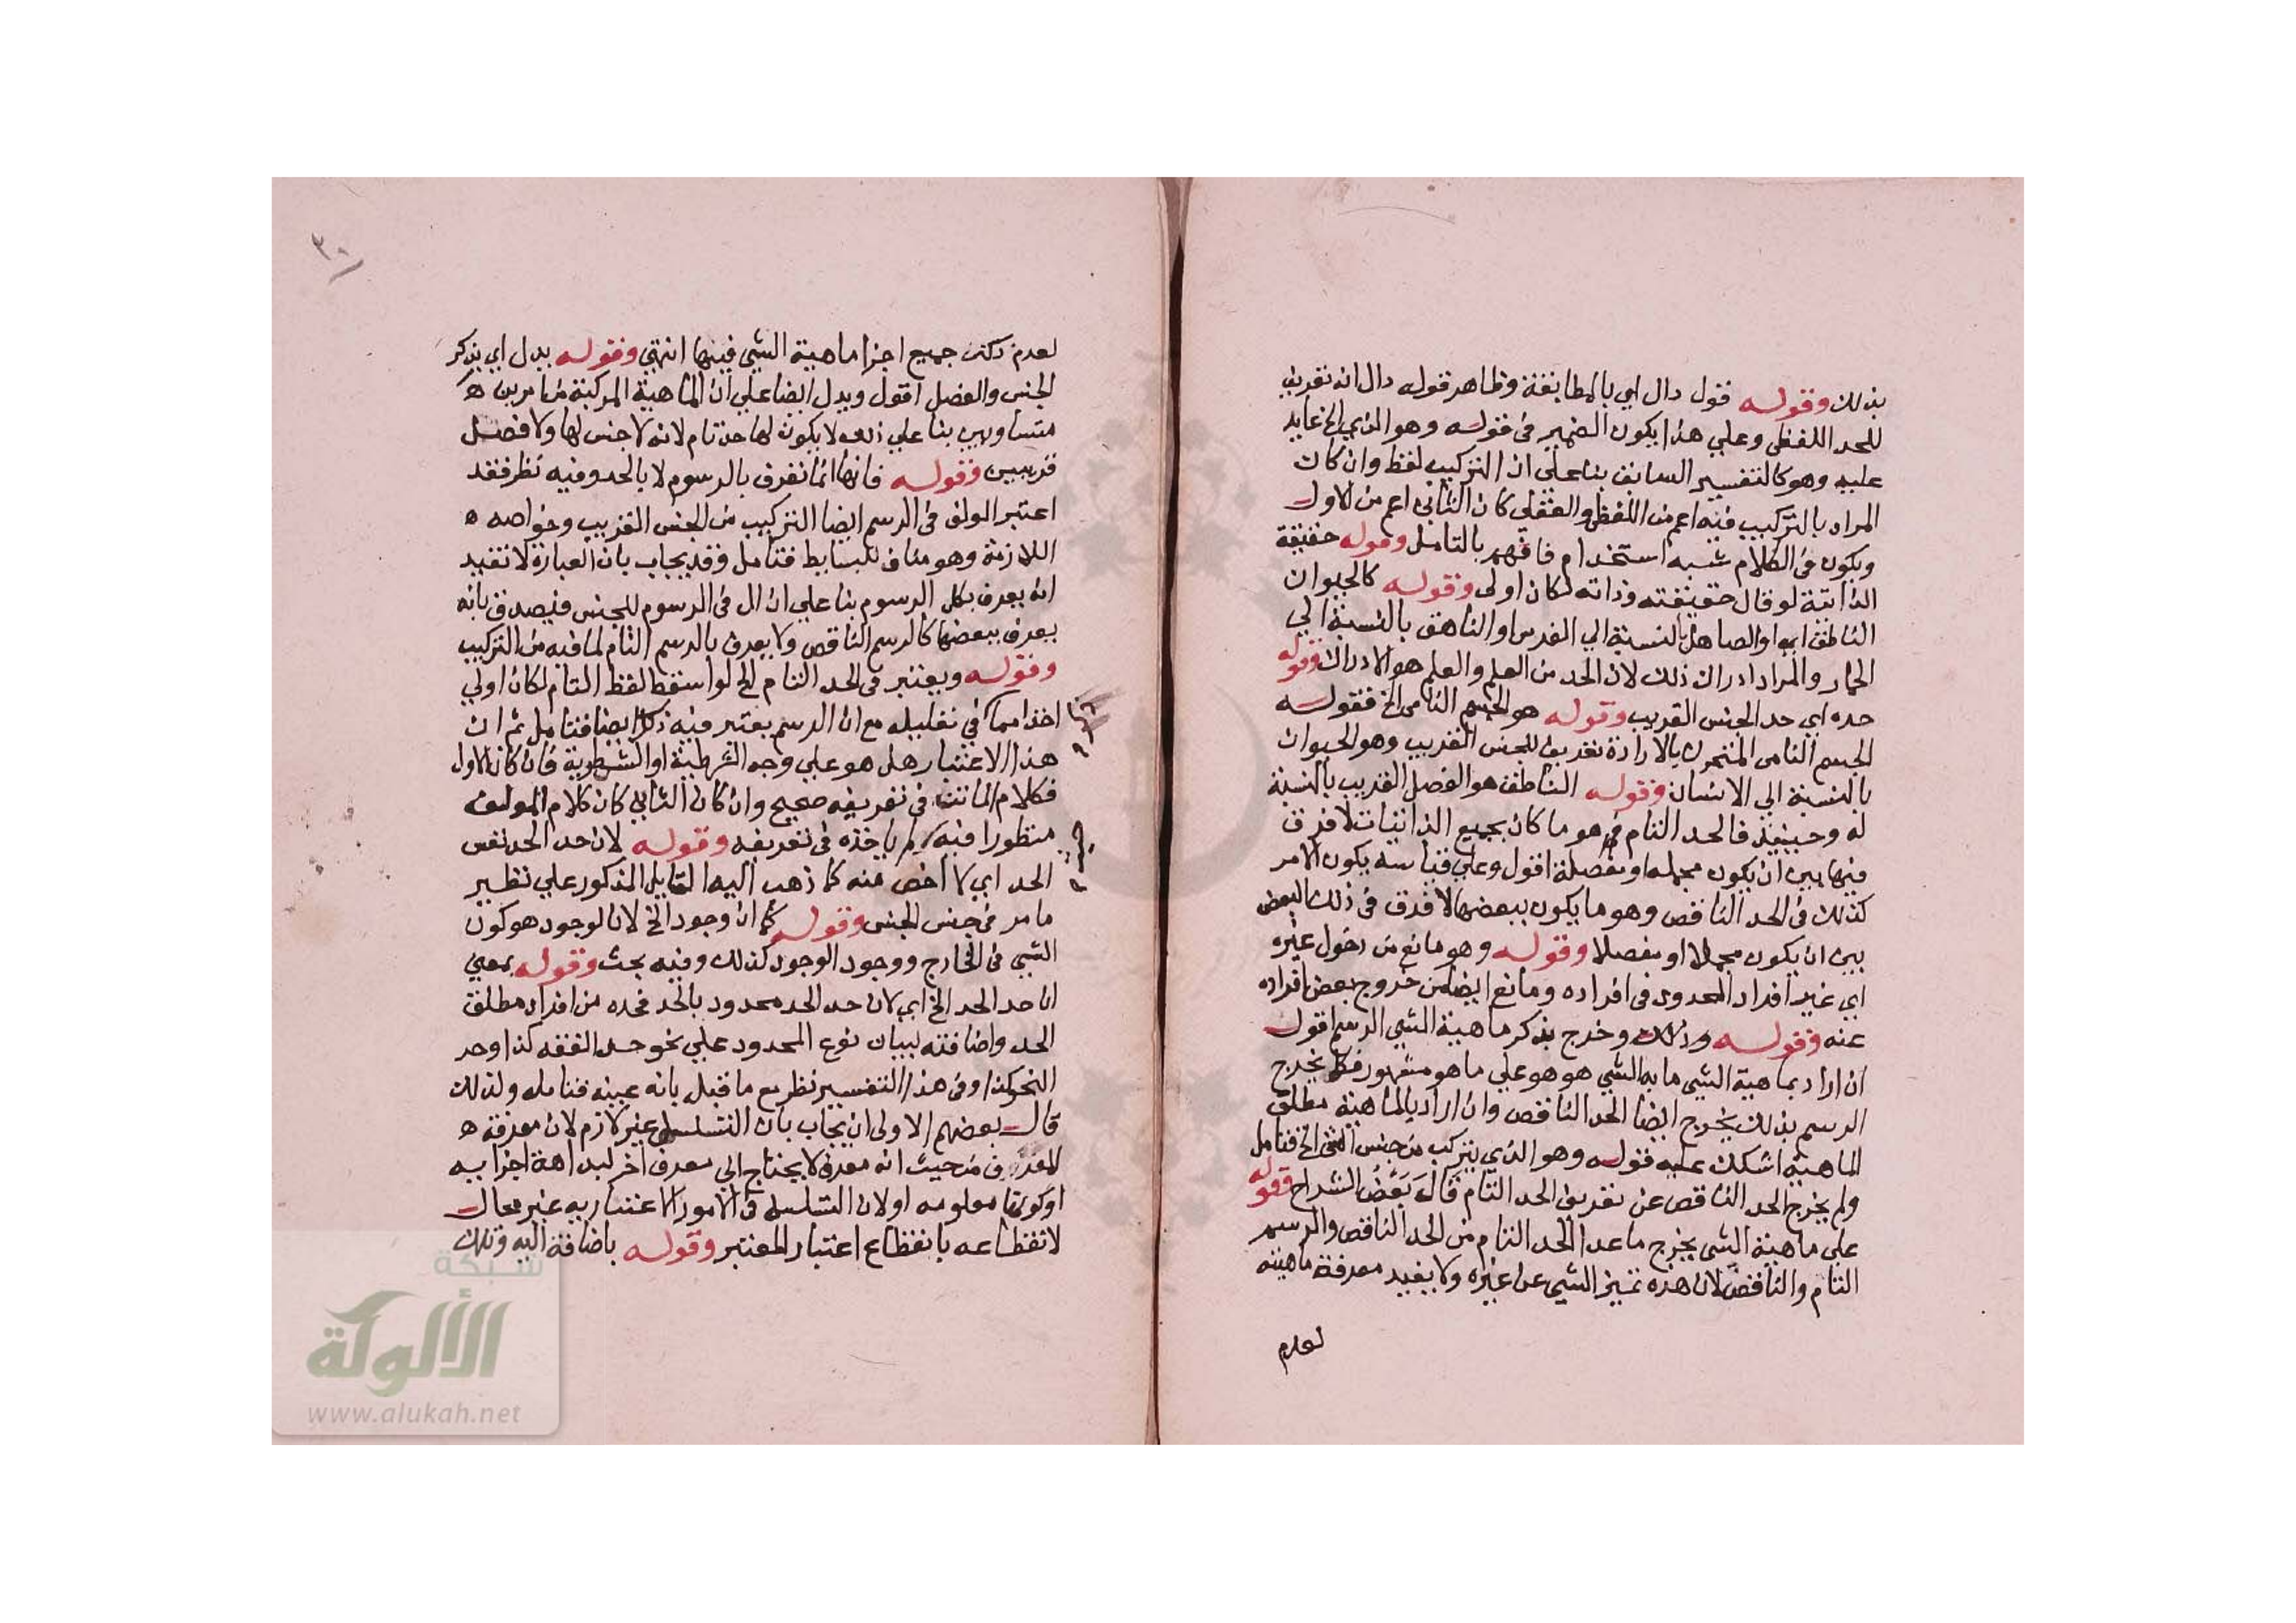 بذلك وقوله قول دال اي بالمطابقة وظاهر قوله دال انه تعريف
للحد اللفظي وعلي هذا يكون الضمير في قوله وهو الذي الخ عايد
عليه وهو كالتفسير السابق بنا علي ان التركيب لفظ وان كان
المراد بالتركيب فيه اعم من اللفظي والعقلي كان الثاني اعم من الاول
ويكون في الكلام شبه استخدام فافهم بالتامل وقوله حقيقة
الذاتية لو قال حقيقته وذاته لكان اولي وقوله كالحيوان
الناطق اي او الصاهل بالنسبة الي الفرس او الناهق بالنسبة الي
الحمار والمراد ادراك ذلك لان الحد من العلم والعلم هو الادراك وقوله
حده اي حد الجنس القريب وقوله هو الجسم النامي الخ فقوله
الجسم النامي المتحرك بالارادة تعريف للجنس القريب وهو الحيوان
بالنسبة الي الانسان وقوله الناطق هو الفصل القريب بالنسبة
له وحينئذ فالحد التام هو ما كان بجميع الذاتيات لا فرق
فيها بين ان يكون مجملة او مفصلة اقول وعلي قياسه يكون الامر
كذلك في الحد الناقص وهو ما يكون ببعضها لا فرق في ذلك البعض
بين ان يكون مجملا او مفصلا وقوله وهو مانع من دخول غيره
اي غير افراد المحدود في افراده ومانع ايضا من خروج بعض افراده
عنه وقوله وذلك وخرج بذكر ماهية الشي الرسم اقول
ان اراد بماهية الشي ما به الشي هو هو علي ما هو مشهور فكما يخرج
الرسم بذلك يخرج ايضا الحد الناقص وان اراد بالماهية مطلق
الماهية اشكل عليه قوله وهو الذي يتركب من جنس الشي الخ فتامل
ولم يخرج الحد الناقص عن تعريف الحد التام قال بعض الشراح فقوله
علي ماهية الشي يخرج ما عدا الحد التام من الحد الناقص والرسم
التام والناقص لان هذه تميز الشي عن غيره ولا يفيد معرفة ماهيته
لعدم
٣٠
لعدم ذكر جميع اجزا ماهية الشي فيها انتهي وقوله يدل اي يذكر
الجنس والفصل اقول ويدل ايضا علي ان الماهية المركبة من امرين ه
متساويين بنا علي ذلك لا يكون لها حد تام لانه لا جنس لها ولا فصل
قريبين وقوله فانها انما تعرف بالرسوم لا بالحد وفيه نظر فقد
اعتبر المولف في الرسم ايضا التركيب من الجنس القريب وخواصه ه
اللازمة وهو مناف للبسايط فتامل وقد يجاب بان العبارة لا تفيد
انه يعرف بكل الرسوم بنا علي ان ال في الرسوم للجنس فيصدق بانه
يعرف ببعضها كالرسم الناقص ولا يعرف بالرسم التام لما فيه من التركيب
وقوله ويعتبر في الحد التام الخ لو اسقط لفظ التام لكان اولي
اخذا مما في تعليله مع ان الرسم يعتبر فيه ذلك ايضا فتامل ثم ان
هذا الاعتبار هل هو علي وجه الشرطية او الشطرية فان كان الاول
فكلام الماتن في تعريفه صحيح وان كان الثاني كان كلام المولف
منظورا فيه لم ياخذه في تعريفه وقوله لان حد الحد نفس
الحد اي لا اخص منه كما ذهب اليه القايل المذكور علي نظير
ما مر في جنس الجنس وقوله كما ان وجود الخ لان الوجود هو كون
الشي في الخارج ووجود الوجود كذلك وفيه بحث وقوله بمعني
ان حد الحد الخ اي لان حد الحد محدود بالحد فحده من افراد مطلق
الحد واضافته لبيان نوع المحدود علي نحو حد الفقه كذا وحد
النحو كذا وفي هذا التفسير نظر مع ما قبل بانه عينه فتامله ولذلك
قال بعضهم الاولي ان يجاب بان التسلسل غير لازم لان معرفة ه
المعرف من حيث انه معرف لا يحتاج الي معرف اخر لبداهة اجزايه
او كونها معلومه او لان التسلسل في الامور الاعتباريه غير محال
لانقطاعه بانقطاع اعتبار المعتبر وقوله باضافة اليه وتلك
شبكة
الألوكة
www.alukah.net